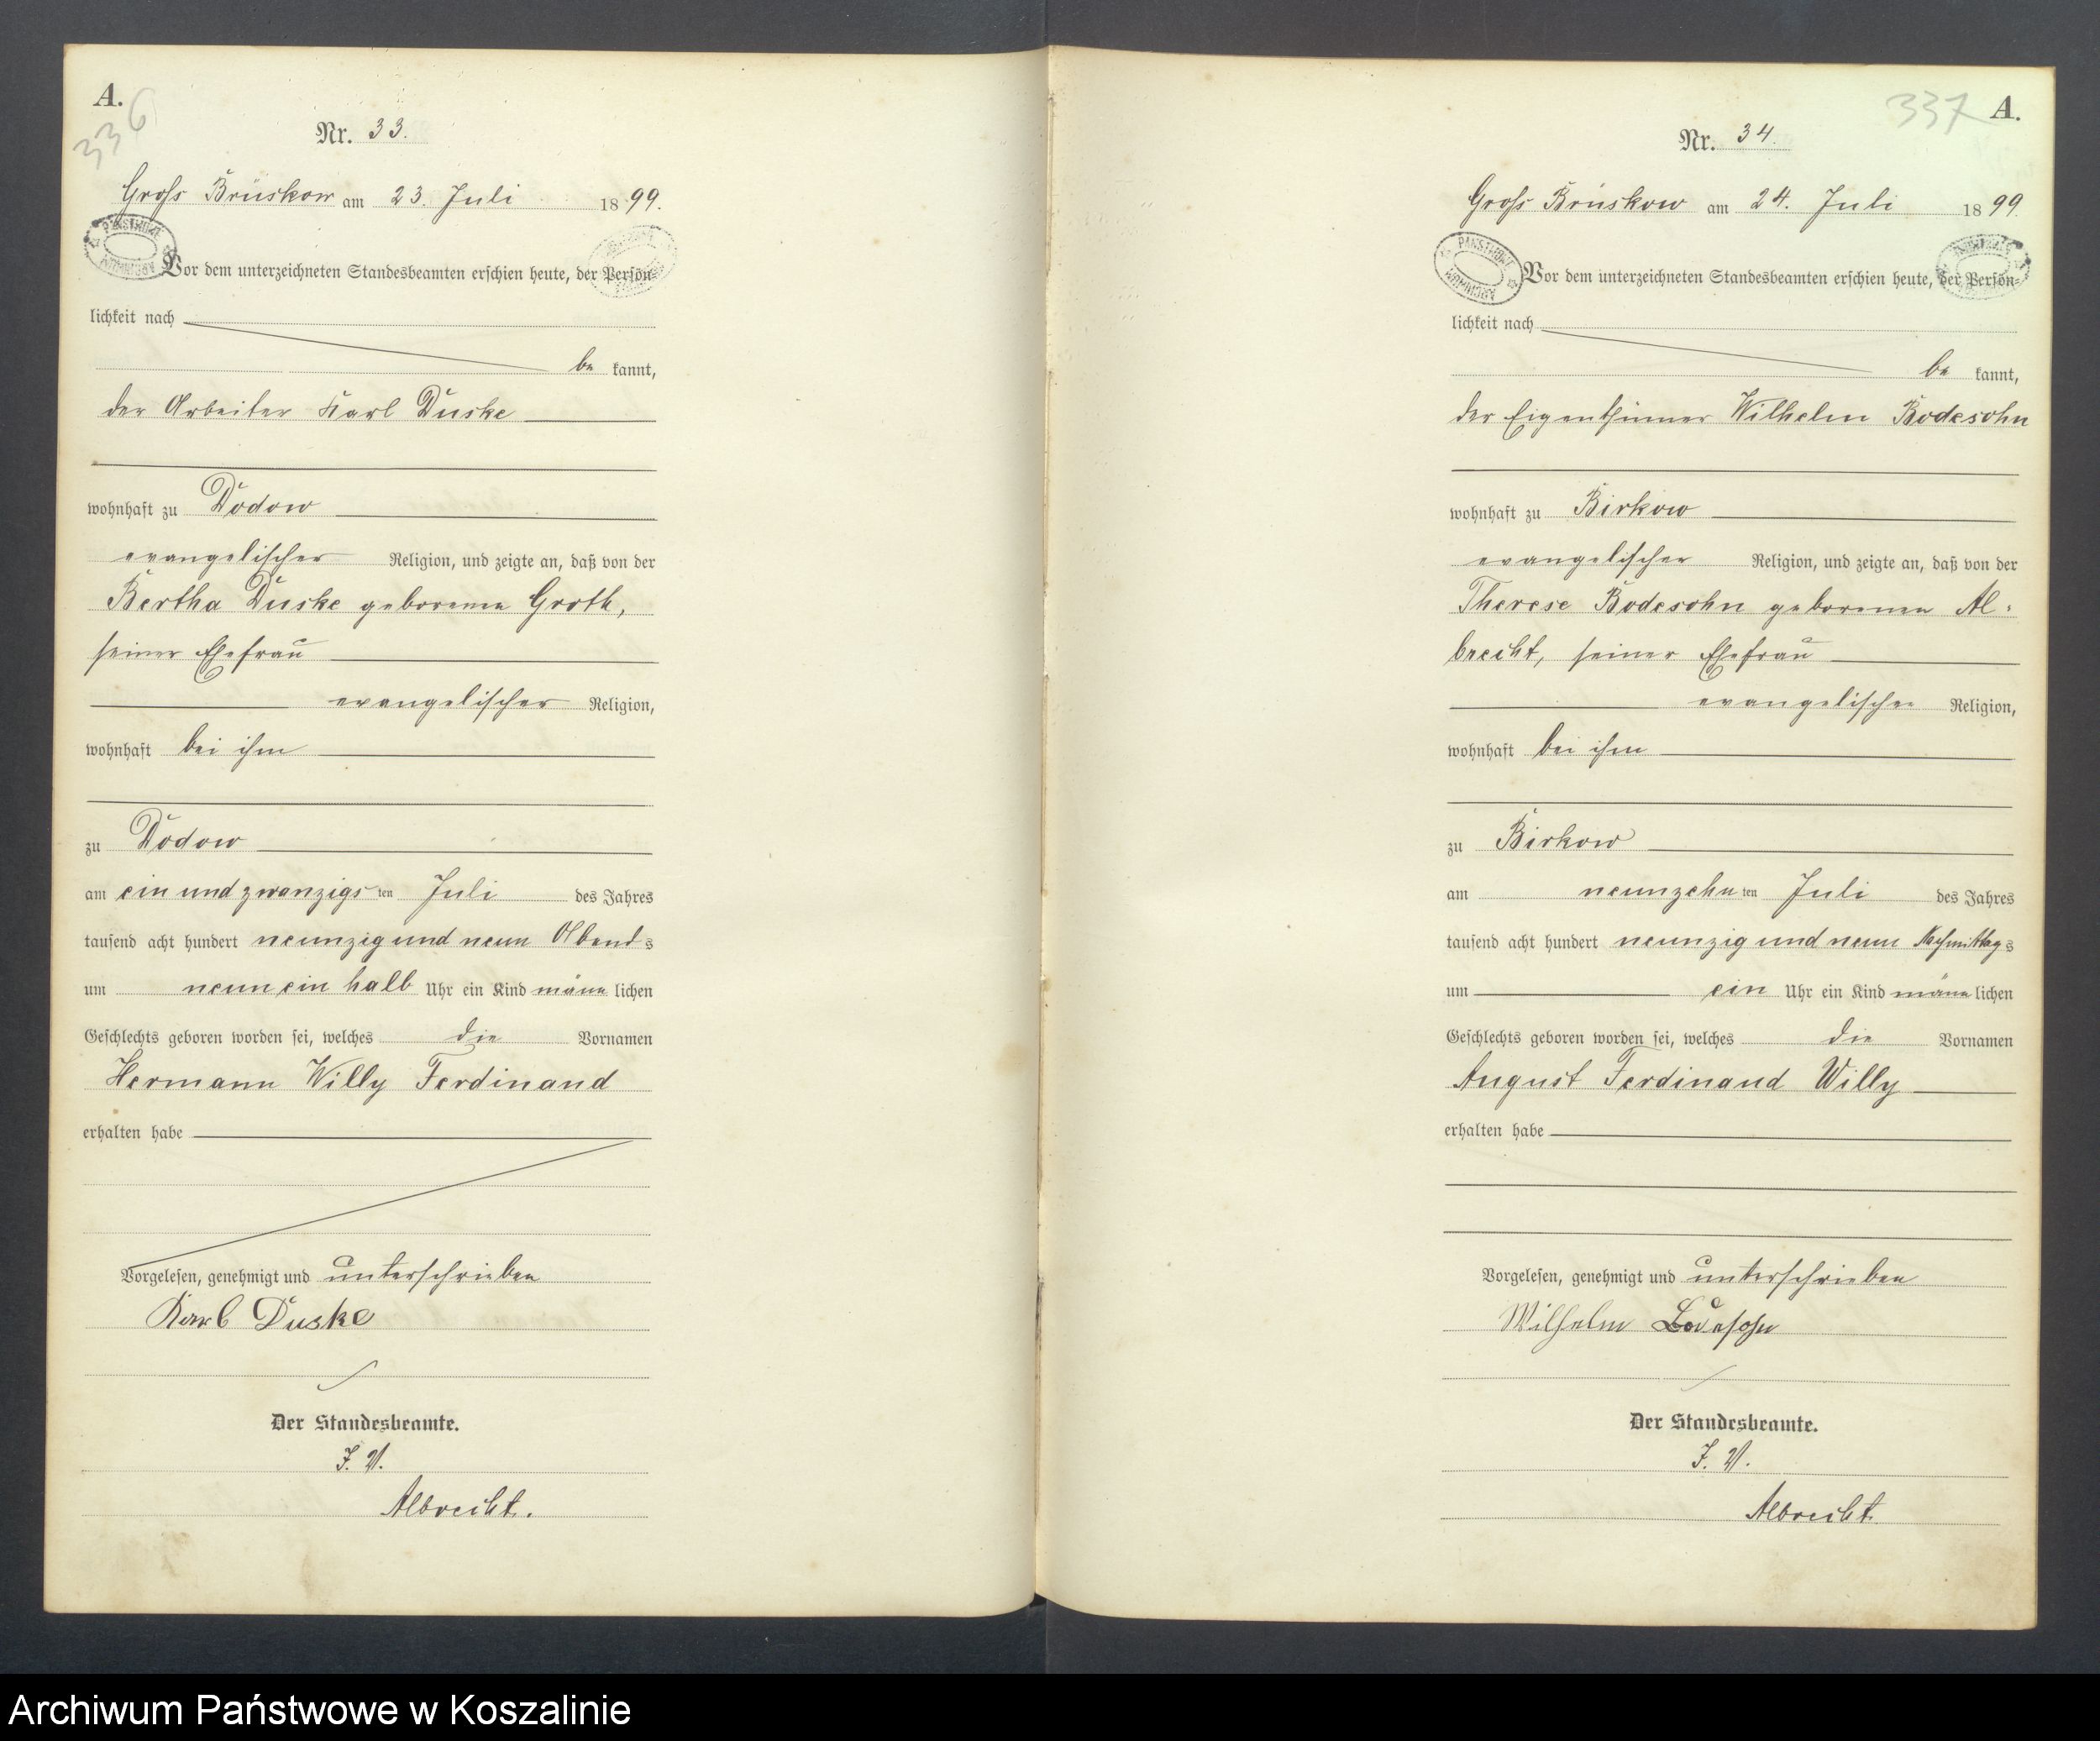 A.
336
Nr. 33.
Gross Brüskow am 23. Juli 1899.
Vor dem unterzeichneten Standesbeamten erschien heute, der Persön-
lichkeit nach
be kannt,
der Arbeiter Karl Duske
wohnhaft zu Dodow
evangelischer Religion, und zeigte an, daß von der
Bertha Duske geborenen Groth,
seiner Ehefrau
evangelischer Religion,
wohnhaft bei ihm
zu Dodow
am ein und zwanzigs ten Juli des Jahres
tausend acht hundert neunzig und neun Abends
um neun ein halb Uhr ein Kind männlichen
Geschlechts geboren worden sei, welches die Vornamen
Hermann Willy Ferdinand
erhalten habe
Vorgelesen, genehmigt und unterschrieben
Karl Duske
Der Standesbeamte.
J. V.
Albrecht.
337 A.
Nr. 34.
Gross Brüskow am 24. Juli 1899.
Vor dem unterzeichneten Standesbeamten erschien heute, der Persön-
lichkeit nach
be kannt,
der Eigenthümer Wilhelm Bodesohn
wohnhaft zu Birkow
evangelischer Religion, und zeigte an, daß von der
Therese Bodesohn geborenen Al-
brecht, seiner Ehefrau
evangelischer Religion,
wohnhaft bei ihm
zu Birkow
am neunzehnten Juli des Jahres
tausend acht hundert neunzig und neun Nachmittags
um ein Uhr ein Kind männlichen
Geschlechts geboren worden sei, welches die Vornamen
August Ferdinand Willy
erhalten habe
Vorgelesen, genehmigt und unterschrieben
Wilhelm Bodesohn
Der Standesbeamte.
J. V.
Albrecht
Archiwum Państwowe w Koszalinie